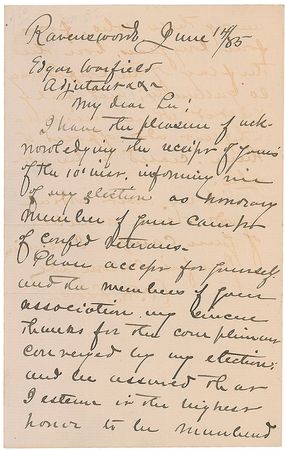 Ravensworth June 14/85
Edgar Warfield
Adjutant &c &c
My dear Sir:
I have the pleasure of ack-
nowledging the receipt of yours
of the 10th inst, informing me
of my election as honorary
member of your camp
of Confed Veterans.
Please accept for yourself
and the members of your
association my sincere
thanks for the compliment
conveyed by my election;
and be assured that
I esteem it the highest
honor to be numbered